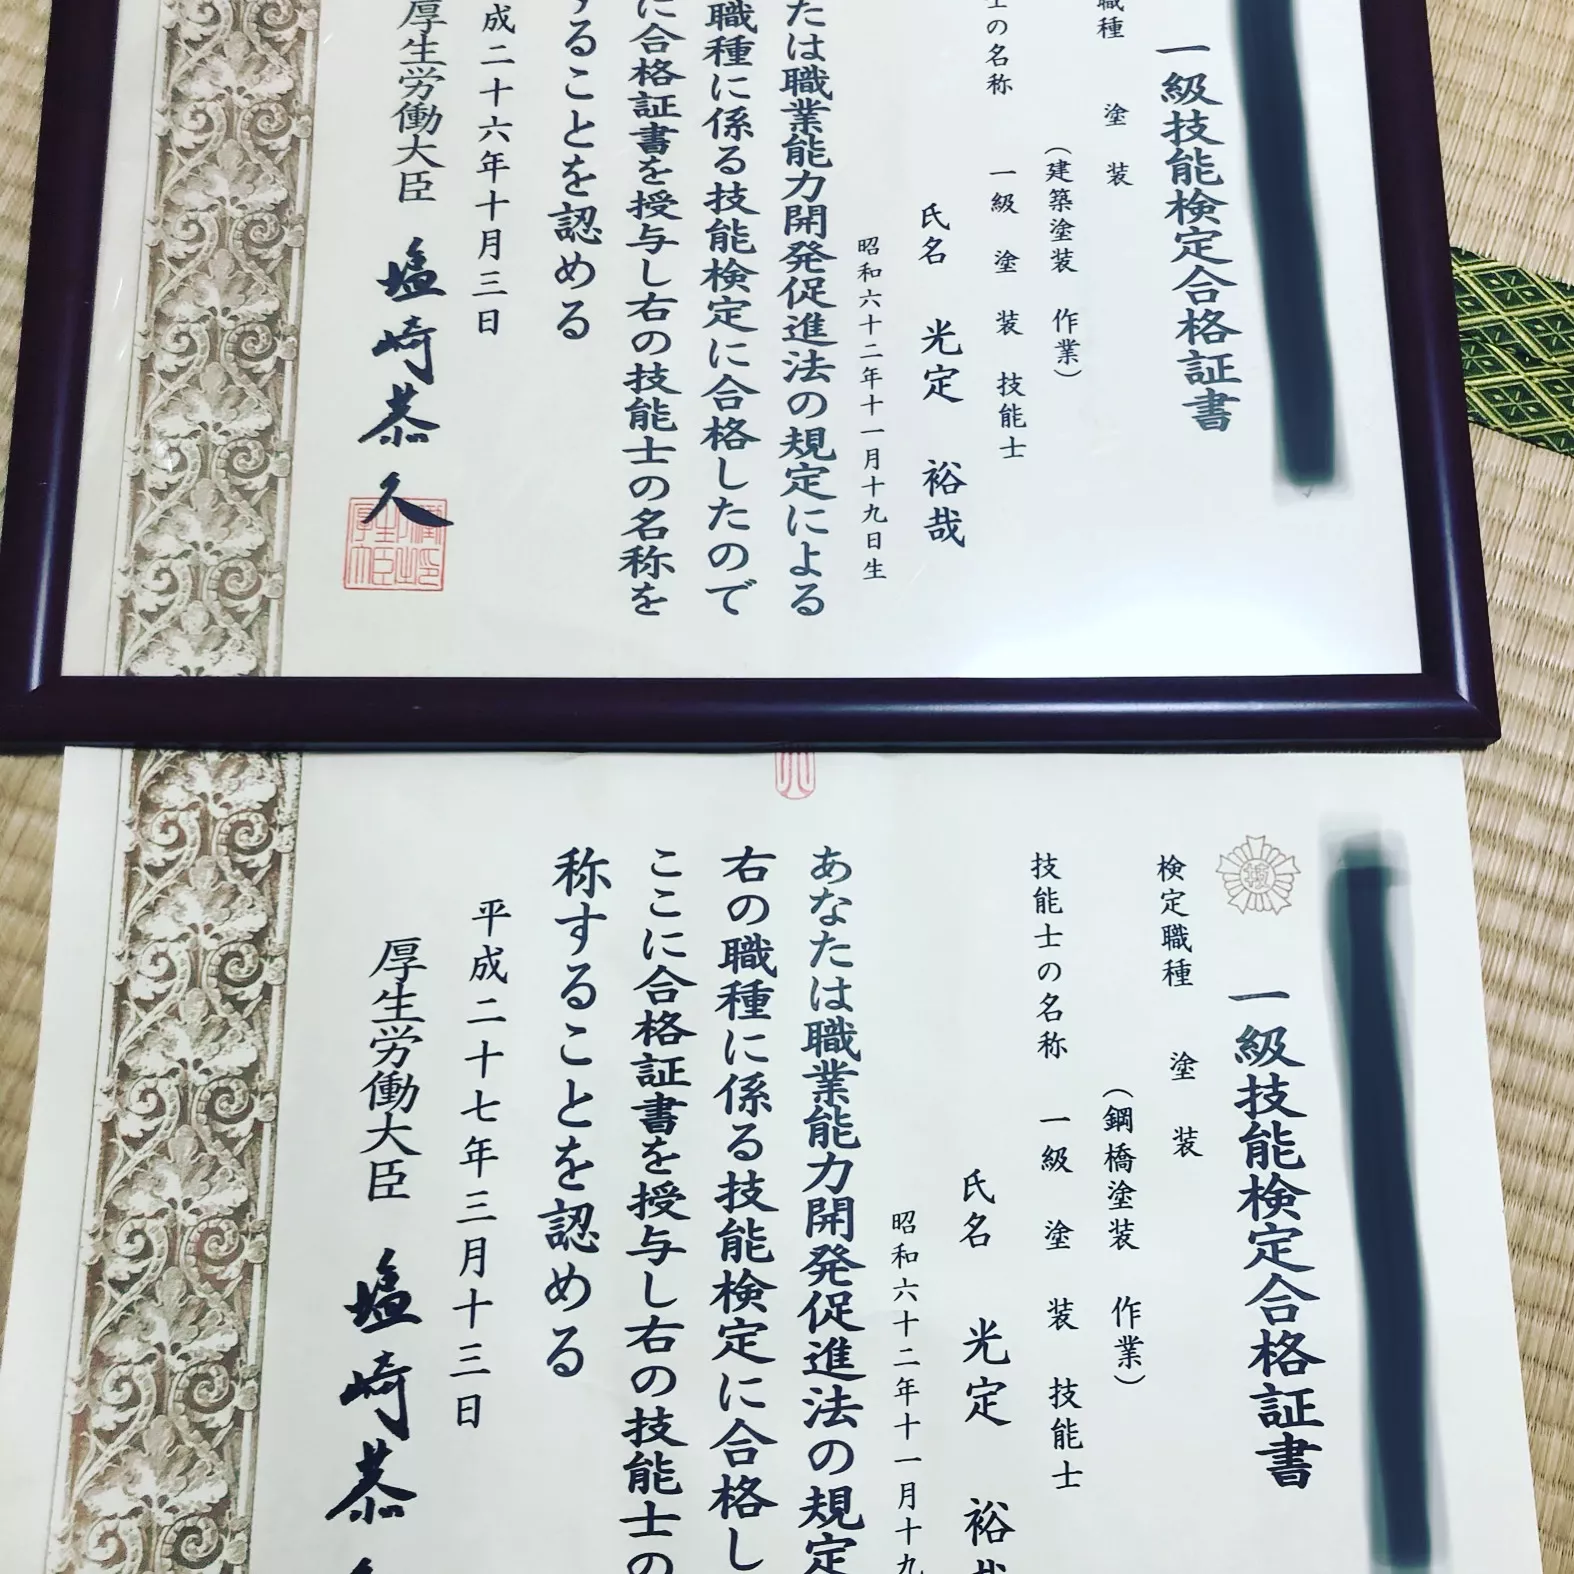 一級技能検定合格証書
職種 塗装
（建築塗装 作業）
士の名称 一級 塗装 技能士
氏名 光定 裕哉
昭和六十二年十一月十九日生
たは職業能力開発促進法の規定による
職種に係る技能検定に合格したので
に合格証書を授与し右の技能士の名称を
することを認める
成二十六年十月三日
厚生労働大臣 塩崎恭久
一級技能検定合格証書
検定職種 塗装
（鋼橋塗装 作業）
技能士の名称 一級 塗装 技能士
氏名 光定 裕哉
昭和六十二年十一月十九
あなたは職業能力開発促進法の規定
右の職種に係る技能検定に合格し
ここに合格証書を授与し右の技能士の
称することを認める
平成二十七年三月十三日
厚生労働大臣 塩崎恭久